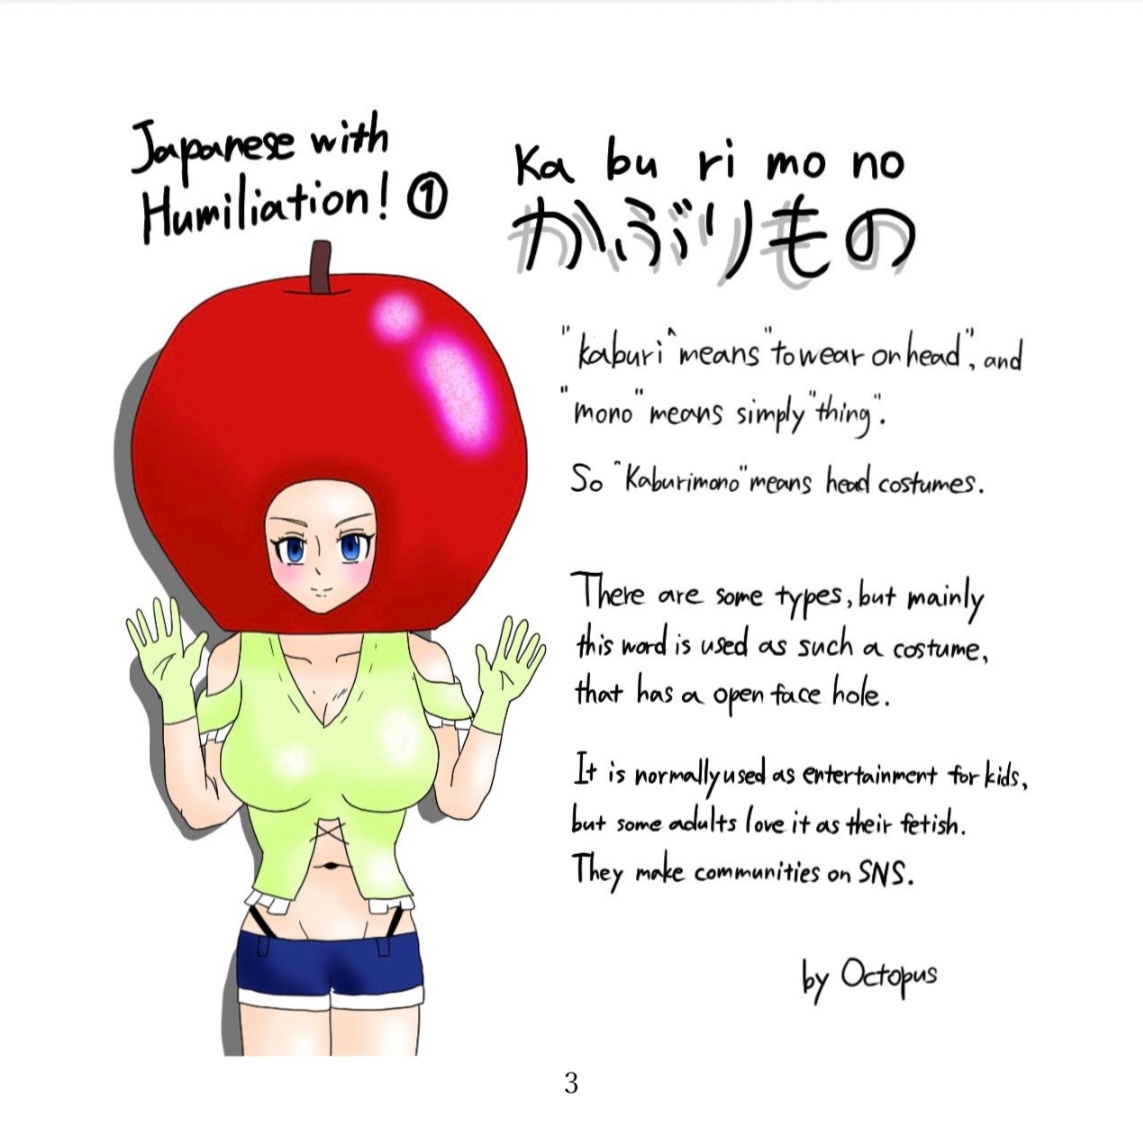 Japanese with
Humiliation! ①
Ka bu ri mo no
かぶりもの
"kaburi" means "to wear on head", and
"mono" means simply "thing".
So "Kaburimono" means head costumes.
There are some types, but mainly
this word is used as such a costume,
that has a open face hole.
It is normally used as entertainment for kids,
but some adults love it as their fetish.
They make communities on SNS.
by Octopus
3